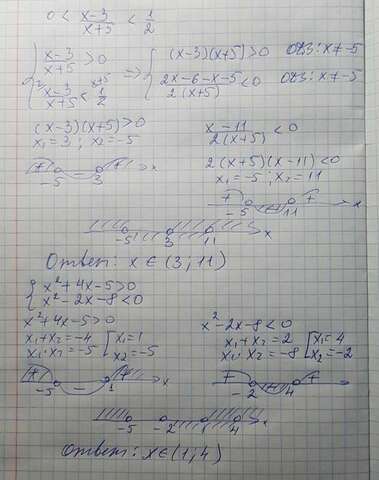 0 < x-3/x+5 < 1/2
{ x-3/x+5 > 0 => { (x-3)(x+5) > 0 ОДЗ: x≠-5
x-3/x+5 < 1/2 2x-6-x-5/2(x+5) < 0 ОДЗ: x≠-5
(x-3)(x+5) > 0
x₁ = 3; x₂ = -5
+ - + x
-5 3
x-11/2(x+5) < 0
2(x+5)(x-11) < 0
x₁ = -5; x₂ = 11
+ - + x
-5 11
-5 3 11 x
Ответ: x ∈ (3; 11)
{ x² + 4x - 5 > 0
x² - 2x - 8 < 0
x² + 4x - 5 > 0
x₁ + x₂ = -4 [ x₁ = 1
x₁ · x₂ = -5 x₂ = -5
+ - + x
-5 1
x² - 2x - 8 < 0
x₁ + x₂ = 2 [ x₁ = 4
x₁ · x₂ = -8 x₂ = -2
+ - +
-2 4
-5 -2 4 x
Ответ: x ∈ (1; 4)